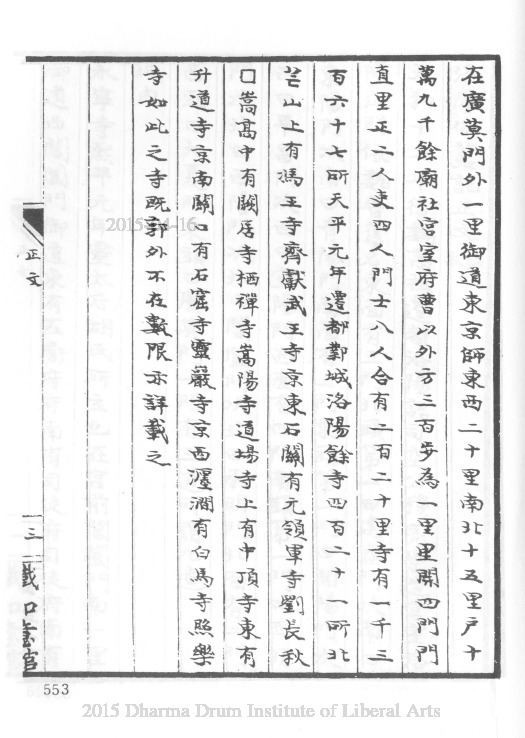 在廣莫門外一里御道東京師東西二十里南北十五里户十
萬九千餘廟社宫室府曹以外方三百步為一里里開四門門
直里正二人吏四人門士八人合有二百二十里寺有一千三
百六十七所天平元年遷都鄴城洛陽餘寺四百二十一所北
芒山上有馮王寺齊獻武王寺京東石關有元領軍寺劉長秋
口嵩髙中有闕居寺栖禪寺嵩陽寺道場寺上有中頂寺東有
升道寺京南關口有石窟寺靈巖寺京西瀍澗有白馬寺照樂
寺如此之寺既郭外不在數限亦詳載之
正文
三一
2015-04-16
553
2015 Dharma Drum Institute of Liberal Arts